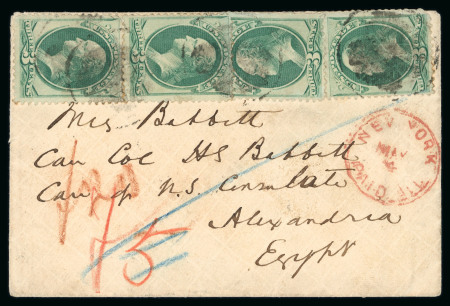 Mrs Babbitt
Care Col H S Babbitt
Care of U.S. Consulate
Alexandria
Egypt
NEW YORK
MAY
PAID ALL
75